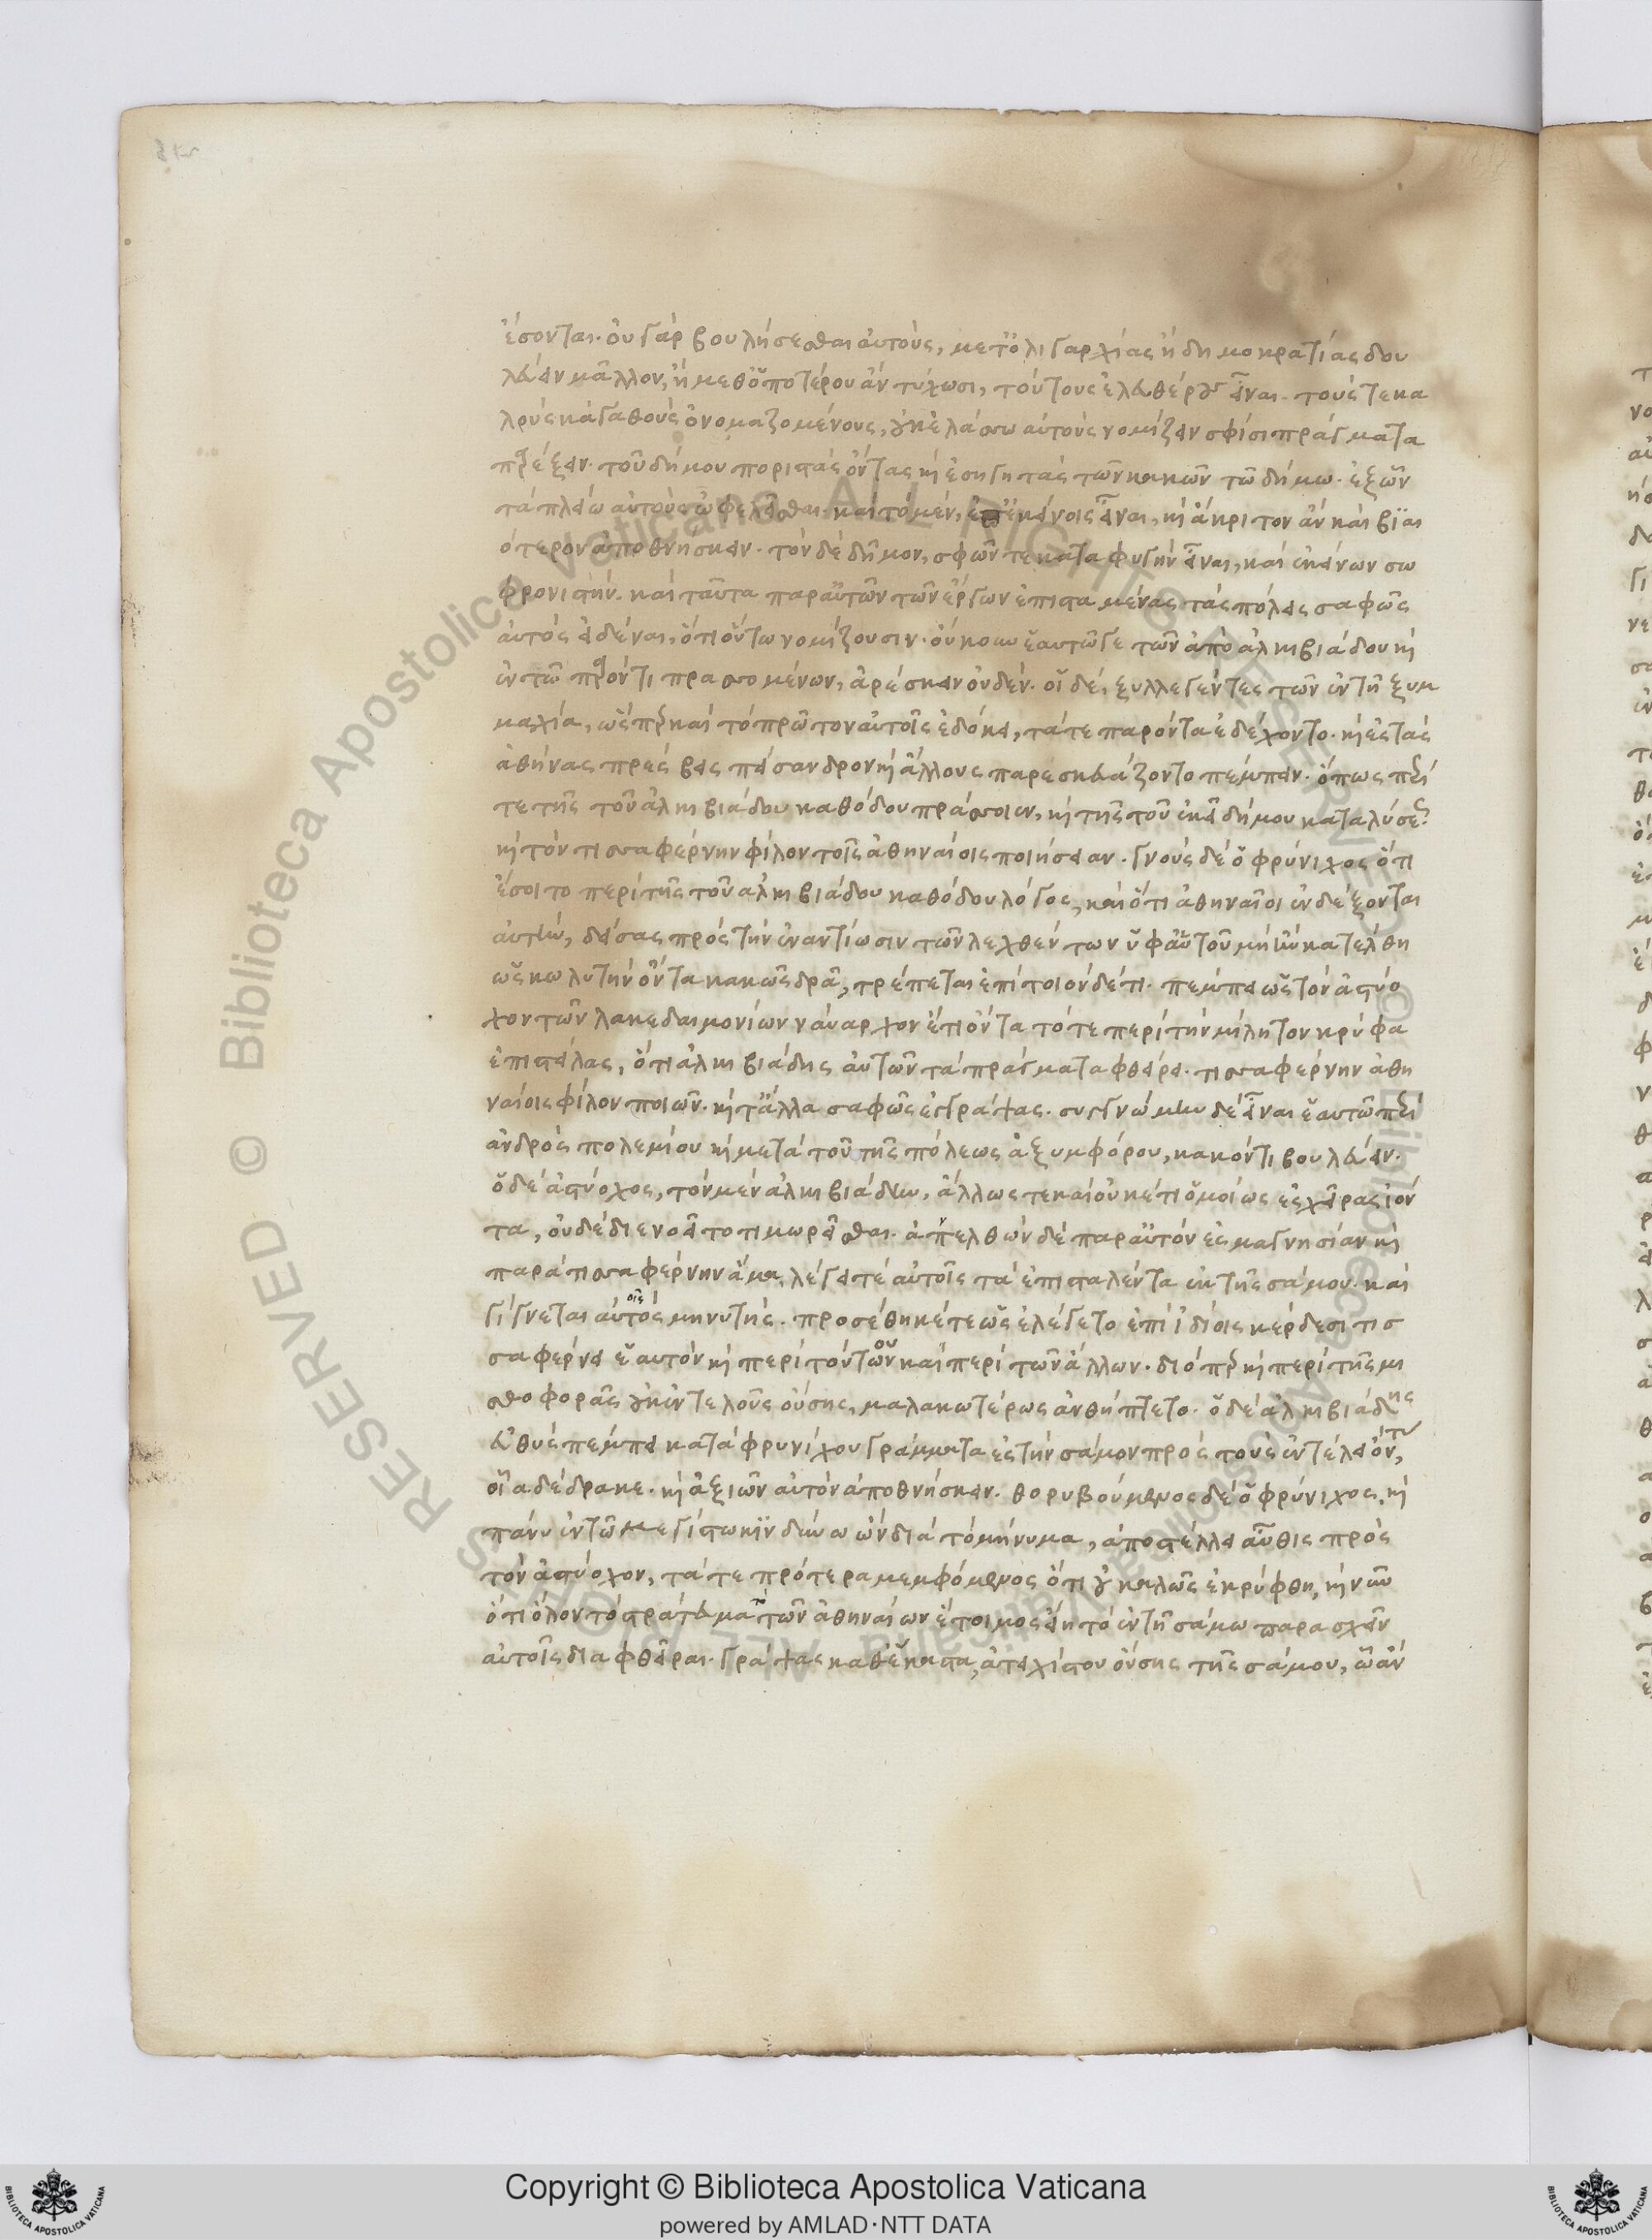 ἔσονται· οὐ γὰρ βουλήσεσθαι αὐτοὺς, μετ' ὀλιγαρχίας ἢ δημοκρατίας δου
λεύειν μᾶλλον, ἢ μεθ' ὁποτέρου ἂν τύχωσι, τούτους ἐλευθέρους εἶναι. τούς τε κα
λοὺς κἀγαθοὺς ὀνομαζομένους, οὐκ ἐλάσσω αὐτοὺς νομίζειν σφίσι πράγματα
παρέξειν· τοῦ δήμου ποριστὰς ὄντας καὶ ἐσηγητὰς τῶν κακῶν τῶ δήμω· ἐξ ὧν
τὰ πλείω αὐτοὺς ὠφελεῖσθαι· καὶ τὸ μὲν, ἐπ' ἐκείνοις εἶναι, καὶ ἄκριτον ἂν καὶ βιαι
ότερον ἀποθνήσκειν· τὸν δὲ δῆμον, σφῶν τε καταφυγὴν εἶναι, καὶ ἐκείνων σω
φρονιστήν. καὶ ταῦτα παρ' αὐτῶν τῶν ἔργων ἐπισταμένας τὰς πόλεις σαφῶς
αὐτὸς εἰδέναι, ὅτι οὕτω νομίζουσιν· οὔκουν ἑαυτῶ γε τῶν ἀπὸ ἀλκιβιάδου καὶ
ἐν τῶ παρόντι πρασσομένων, ἀρέσκειν οὐδέν. οἱ δὲ, ξυλλεγέντες τῶν ἐν τῆ ξυμ
μαχία, ὥσπερ καὶ τὸ πρῶτον αὐτοῖς ἐδόκει, τά τε παρόντα ἐδέχοντο· καὶ ἐς τὰς
ἀθήνας πρέσβεις πείσανδρον καὶ ἄλλους παρεσκευάζοντο πέμπειν· ὅπως περί
τε τῆς τοῦ ἀλκιβιάδου καθόδου πράσσοιεν, καὶ τῆς τοῦ ἐκεῖ δήμου καταλύσεως
καὶ τὸν τισσαφέρνην φίλον τοῖς ἀθηναίοις ποιήσειαν· γνοὺς δὲ ὁ φρύνιχος ὅτι
ἔσοιτο περὶ τῆς τοῦ ἀλκιβιάδου καθόδου λόγος, καὶ ὅτι ἀθηναῖοι ἐνδέξονται
αὐτὴν, δείσας πρὸς τὴν ἐναντίωσιν τῶν λεχθέντων ὑφ' αὑτοῦ μὴ ἢν κατέλθη
ὡς κωλυτὴν ὄντα κακῶς δρᾶ, τρέπεται ἐπὶ τοιόνδέ τι· πέμπει ὡς τὸν ἀστύο
χον τῶν λακεδαιμονίων ναύαρχον ἔτι ὄντα τότε περὶ τὴν μίλητον κρύφα
ἐπιστείλας, ὅτι ἀλκιβιάδης αὐτῶν τὰ πράγματα φθείρει· τισσαφέρνην ἀθη
ναίοις φίλον ποιῶν· καὶ τἄλλα σαφῶς ἐγγράψας· συγγνώμην δὲ εἶναι ἑαυτῶ περὶ
ἀνδρὸς πολεμίου καὶ μετὰ τοῦ τῆς πόλεως ἀξυμφόρου, κακόν τι βουλεύειν·
ὁ δὲ ἀστύοχος, τὸν μὲν ἀλκιβιάδην, ἄλλως τε καὶ οὐκέτι ὁμοίως ἐς χεῖρας ἰόν
τα, οὐδὲ διενοεῖτο τιμωρεῖσθαι· ἀπελθὼν δὲ παρ' αὐτὸν ἐς μαγνησίαν καὶ
παρὰ τισσαφέρνην ἅμα, λέγει τε αὐτοῖς τὰ ἐπισταλέντα ἐκ τῆς σάμου· καὶ
γίγνεται αὐτὸς μηνυτής· προσέθηκέ τε ὡς ἐλέγετο ἐπὶ ἰδίοις κέρδεσι τισ
σαφέρνει ἑαυτὸν καὶ περὶ τούτων καὶ περὶ τῶν ἄλλων· διόπερ καὶ περὶ τῆς μι
σθοφορᾶς οὐκ ἐντελοῦς οὔσης, μαλακωτέρως ἀνθήπτετο· ὁ δὲ ἀλκιβιάδης
εὐθὺς πέμπει κατὰ φρυνίχου γράμματα ἐς τὴν σάμον πρὸς τοὺς ἐν τέλει ὄντας,
οἷα δέδρακε· καὶ ἀξιῶν αὐτὸν ἀποθνήσκειν· θορυβούμενος δὲ ὁ φρύνιχος, καὶ
πάνυ ἐν τῶ μεγίστω κινδύνω ὢν διὰ τὸ μήνυμα, ἀποστέλλει αὖθις πρὸς
τὸν ἀστύοχον, τά τε πρότερα μεμφόμενος ὅτι οὐ καλῶς ἐκρύφθη, καὶ νῦν
ὅτι ὅλον τὸ στράτευμα τῶν ἀθηναίων ἕτοιμος εἴη τὸ ἐν τῆ σάμω παρασχεῖν
αὐτοῖς διαφθεῖραι· γράψας καθ' ἕκαστα, ἀτειχίστου οὔσης τῆς σάμου, ὧ ἂν
Copyright © Biblioteca Apostolica Vaticana
powered by AMLAD·NTT DATA